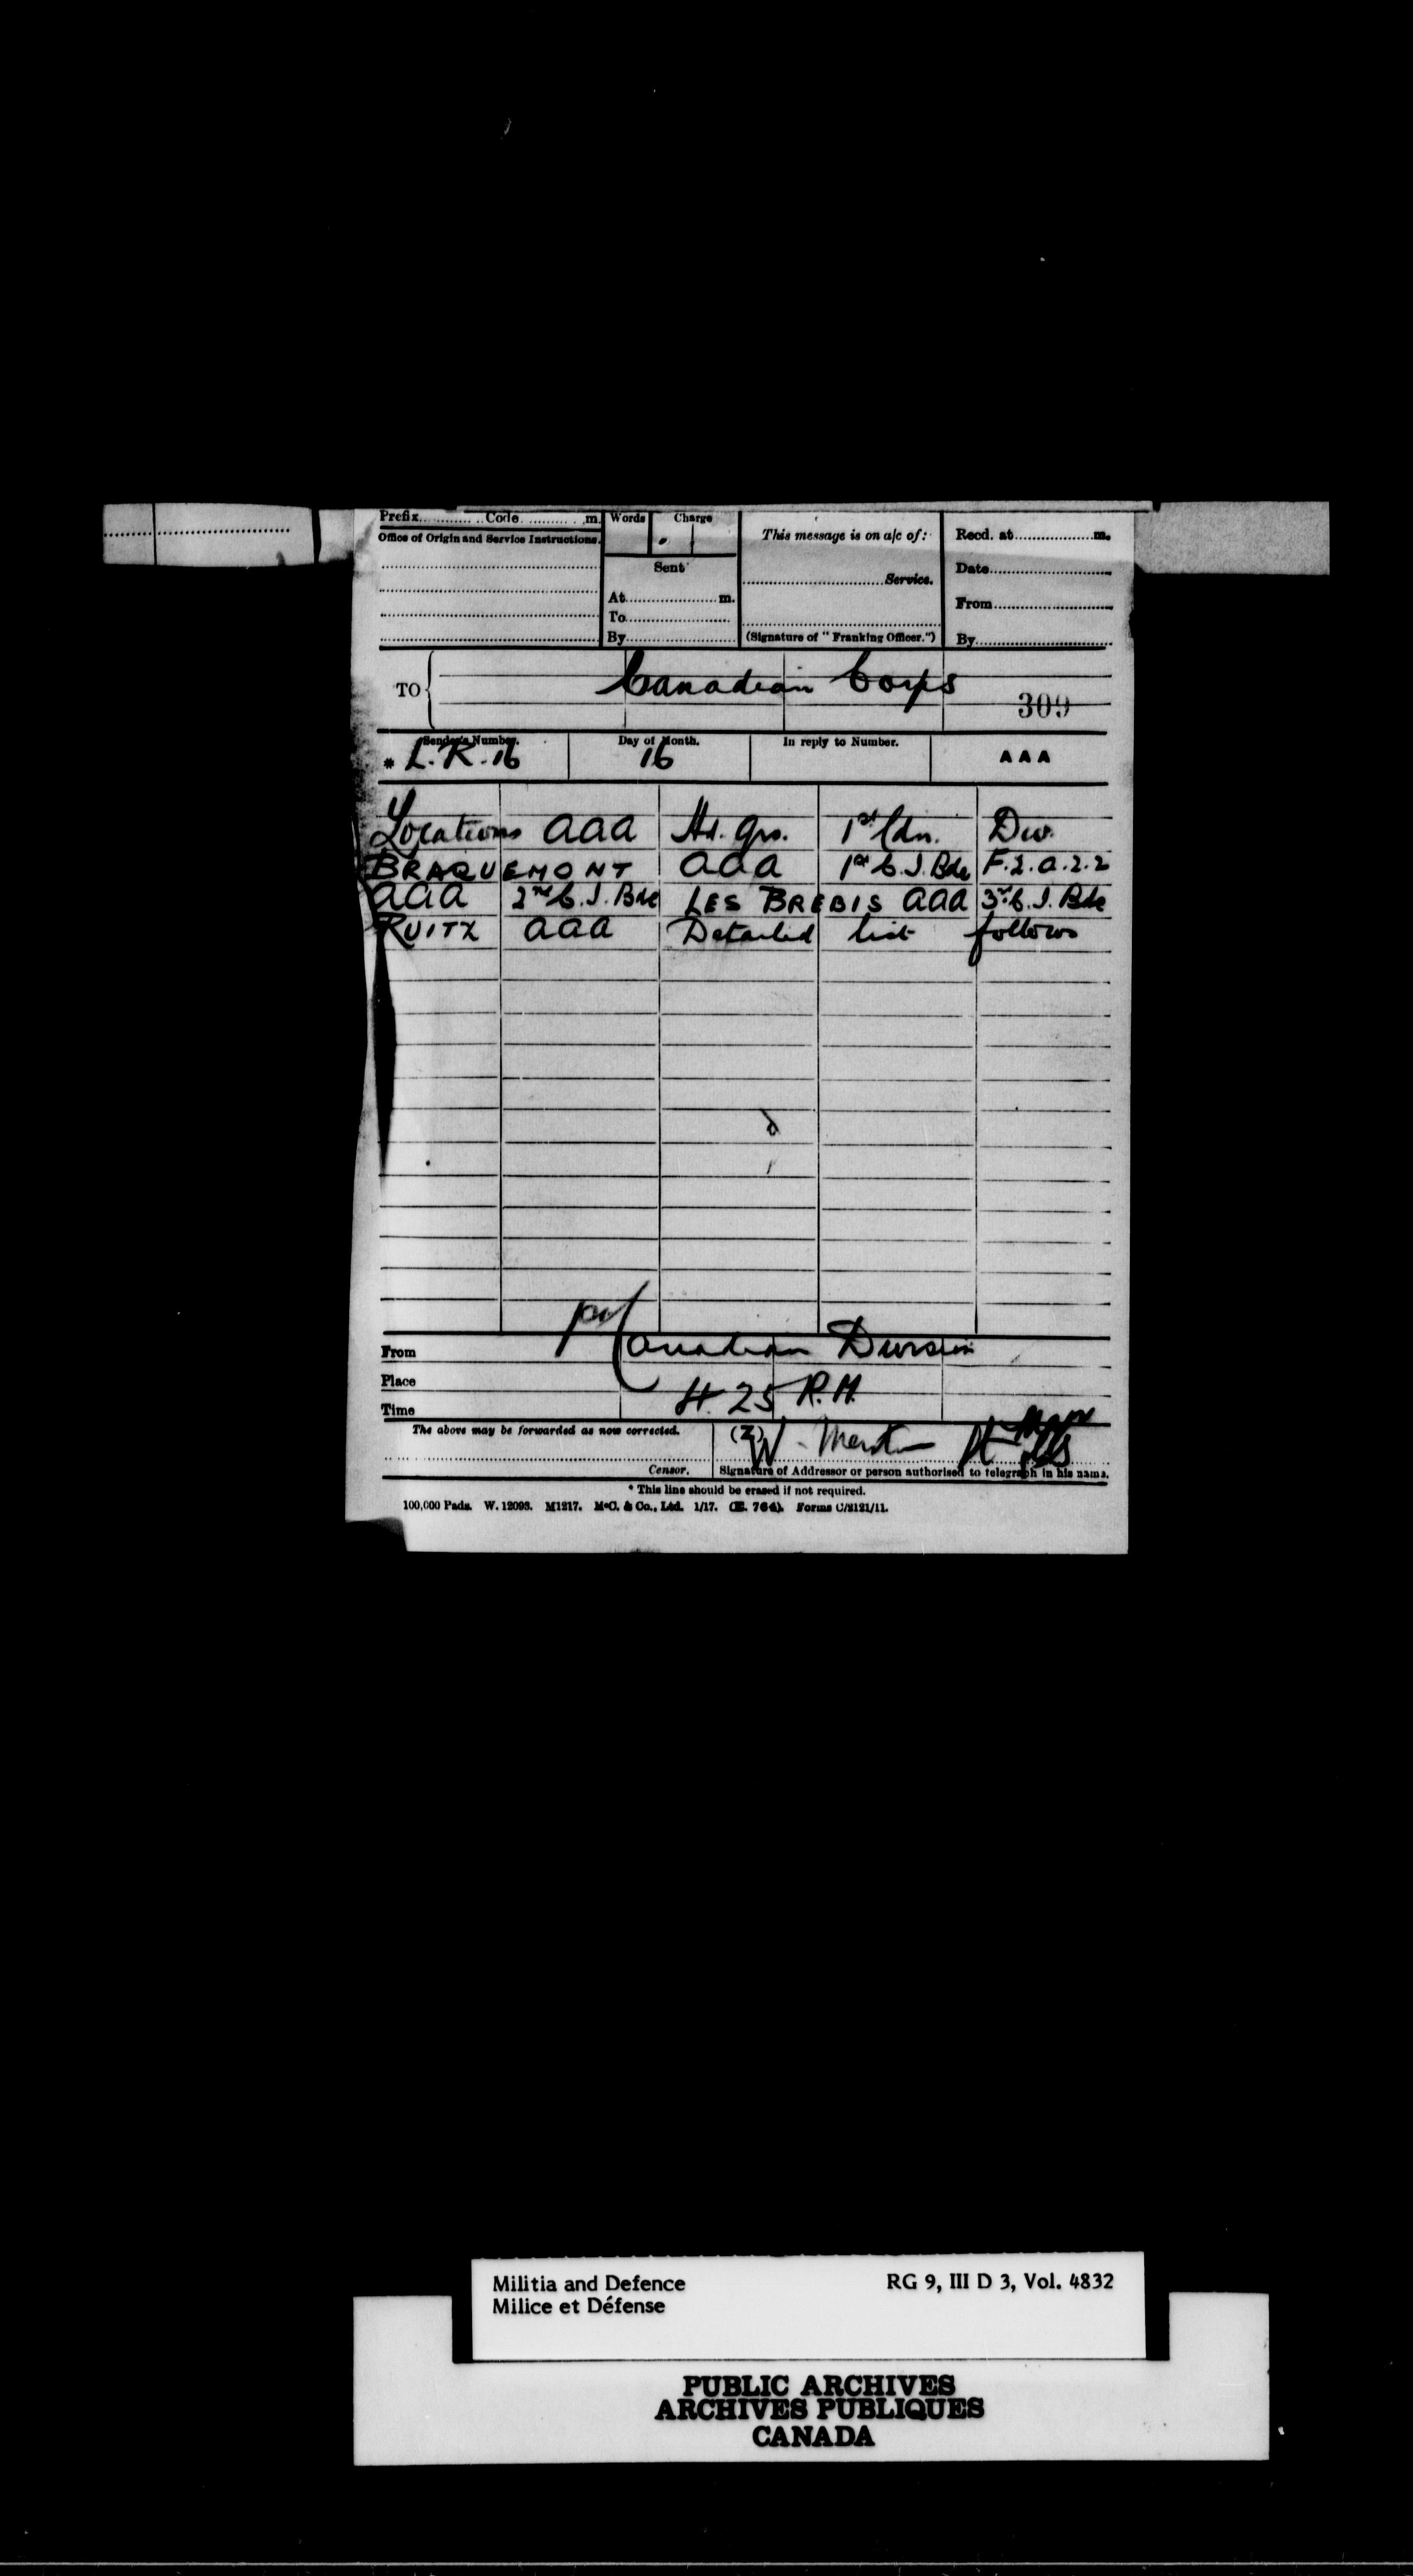 Prefix............ Code............m. Words Charge
Office of Origin and Service Instructions.
Sent
At....................m.
To....................
By....................
This message is on a/c of:
....................Service.
(Signature of "Franking Officer.")
Recd. at..................m.
Date....................
From....................
By....................
TO Canadian Corps
309
Sender's Number. Day of Month. In reply to Number.
* L.R. 16 16 AAA
Locations aaa Hd. Qrs. 1st Cdn. Div.
BRAQUEMONT aaa 1st C.I. Bde F.2.a.2.2
aaa 2nd C.I. Bde LES BREBIS aaa 3rd C.I. Bde
RUITZ aaa Detailed list follows
From Canadian Division
Place
Time 4.25 P.M.
The above may be forwarded as now corrected. (Z) W.
Censor. Signature of Addressor or person authorised to telegraph in his name.
* This line should be erased if not required.
100,000 Pads. W. 12093. M1217. McC. & Co., Ltd. 1/17. (E. 764). Forms C/2121/11.
Militia and Defence RG 9, III D 3, Vol. 4832
Milice et Défense
PUBLIC ARCHIVES
ARCHIVES PUBLIQUES
CANADA